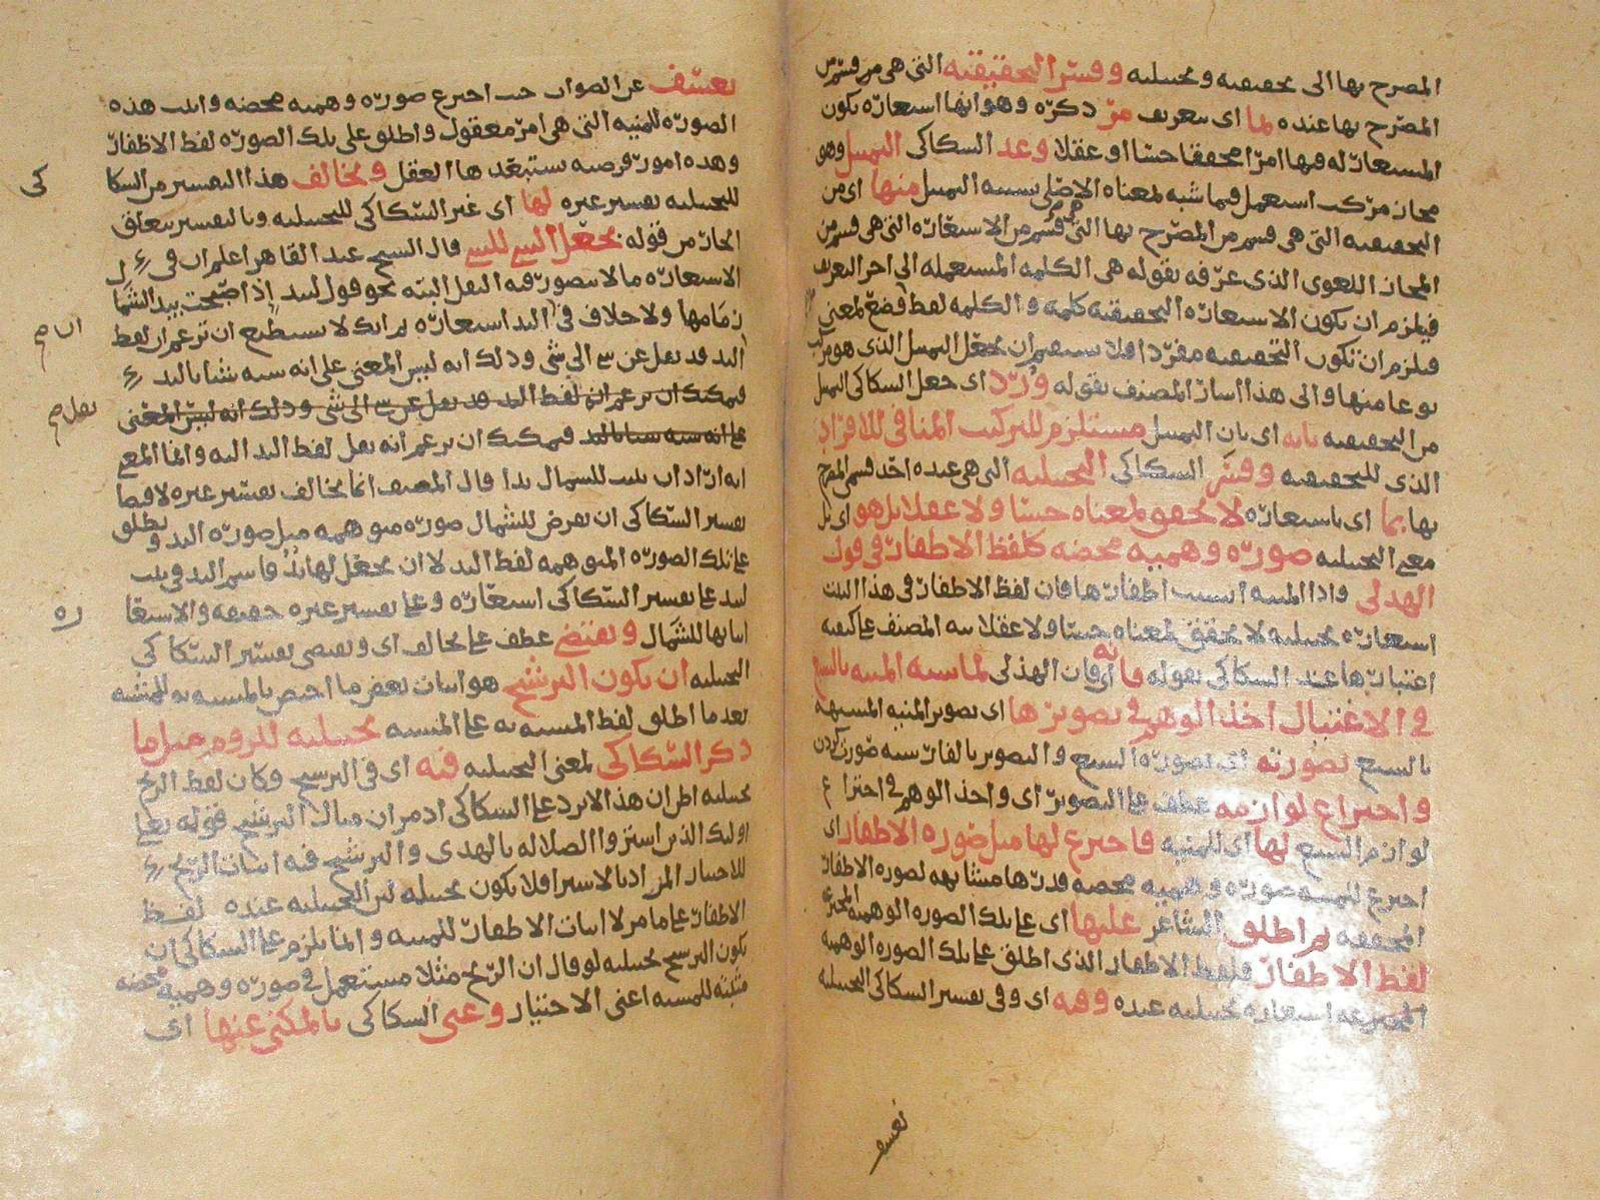 المصرح بها الى تحقيقية وتخييلية وفسر التحقيقية التي هي من قسم من
المصرح بها عنده بما اى بتعريف مر ذكره وهو انها استعارة يكون
المستعار له فيها امرا محققا حسا او عقلا وعد السكاكى التمثيل وهو
مجاز مركب استعمل فيما شبه بمعناه الاصلى تشبيه التمثيل منها اى من
التحقيقية التى هى قسم من المصرح بها التى هى قسم من الاستعارة التى هى قسم من
المجاز اللغوى الذى عرفه بقوله هى الكلمة المستعملة الى اخر التعريف
فيلزم ان يكون الاستعارة التحقيقية كلمة والكلمة لفظ وضع لمعنى
فيلزم ان تكون التحقيقية مفردا فلا يستقيم ان يجعل التمثيل الذى هو مركب
نوعا منها والى هذا اشار المصنف بقوله ورد اى جعل السكاكى التمثيل
من التحقيقية بانه اى بان التمثيل مستلزم للتركيب المنافى للافراد
الذى للتحقيقية وفسر السكاكى التخييلية التى هى عنده احد قسمى المصرح
بها بما اى باستعارة لا تحقق لمعناه حسا ولا عقلا بل هو اى بل
معنى التخييلية صورة وهمية محضة كلفظ الاظفار فى قول
الهذلى واذا المنية انشبت اظفارها فان لفظ الاظفار فى هذا البيت
استعارة تخييلية لا تحقق لمعناه حسا ولا عقلا نبه المصنف على كيفية
اعتبارها عند السكاكى بقوله فانه اى فان الهذلى لما شبه المنية بالسبع
فى الاغتيال اخذ الوهم فى تصويرها اى تصوير المنية المشبهة
بالسبع بصورته اى بصورة السبع والتصوير بالفارسية صورت كردن
واختراع لوازمه عطف على التصوير اى واخذ الوهم فى اختراع
لوازم السبع لها اى للمنية فاخترع لها مثل صورة الاظفار اى
اخترع للمنية صورة وهمية محضة قدرها مشابهة لصورة الاظفار
المحققة ثم اطلق الشاعر عليها اى على تلك الصورة الوهمية المخترعة
لفظ الاظفار فلفظ الاظفار الذى اطلق على تلك الصورة الوهمية
المخترعة استعارة تخييلية عنده وفيه اى وفى تفسير السكاكى التخييلية
تعسف
تعسف عن الصواب حيث اخترع صورة وهمية محضة واثبت هذه
الصورة للمنية التى هى امر معقول واطلق على تلك الصورة لفظ الاظفار
وهذه امور فرضية ستبعدها العقل ويخالف هذا التفسير من السكا
كى
للتخييلية تفسير غيره لها اى غير السكاكى للتخييلية وبالتفسير يتعلق
الجار من قوله بجعل الشى للشى قال الشيخ عبد القاهر اعلم ان فى
الاستعارة ما لا يتصور فيه النقل البتة نحو قول لبيد اذ اصبحت بيد الشما ل
زمامها ولا خلاف فى ان اليد استعارة ثم انك لا تستطيع ان تزعم ان لفظ
اليد قد نقل عن شى الى شى وذلك انه ليس المعنى على انه شبه شيئا باليد
فيمكنك ان تزعم ان لفظ اليد قد نقل عن شى الى شى وذلك انه ليس المعنى
على انه شبه شيئا باليد فيمكنك ان تزعم انه نقل لفظ اليد اليه وانما المعنى
انه اراد ان يثبت للشمال يدا قال المصنف انما يخالف تفسير غيره لاقتضا
تفسير السكاكى ان تفرض للشمال صورة متوهمة مثل صورة اليد ويطلق
على تلك الصورة المتوهمة لفظ اليد لا ان يجعل لها يد فاسم اليد فى بيت
لبيد على تفسير السكاكى استعارة وعلى تفسير غيره حقيقة والاستعا
ره
اثباتها للشمال ويقتضى عطف على يخالف اى ويقتضى تفسير السكاكى
التخييلية ان يكون الترشيح هو اثبات بعض ما اختص بالمشبه به للمشبه
بعد ما اطلق لفظ المشبه به على المشبه تخييلية للزوم مثل ما
ذكر السكاكى لمعنى التخييلية فيه اى فى الترشيح وكان لفظ الربح
تخييلية اظن ان هذا لا يرد على السكاكى اذ مر ان مثال الترشيح قوله تعالى
اولئك الذين اشتروا الضلالة بالهدى والترشيح فيه اثبات الربح
للاختيار المراد بالاشترا فلا يكون تخييلية لان التخييلية عنده لفظ
الاظفار على ما مر لا اثبات الاظفار للمنية وانما يلزم على السكاكى ان
يكون الترشيح تخييلية لو قال ان الربح مثلا مستعمل فى صورة وهمية محضة
مثبتة للمشبه اعنى الاختيار وعنى السكاكى بالمكنى عنها اى